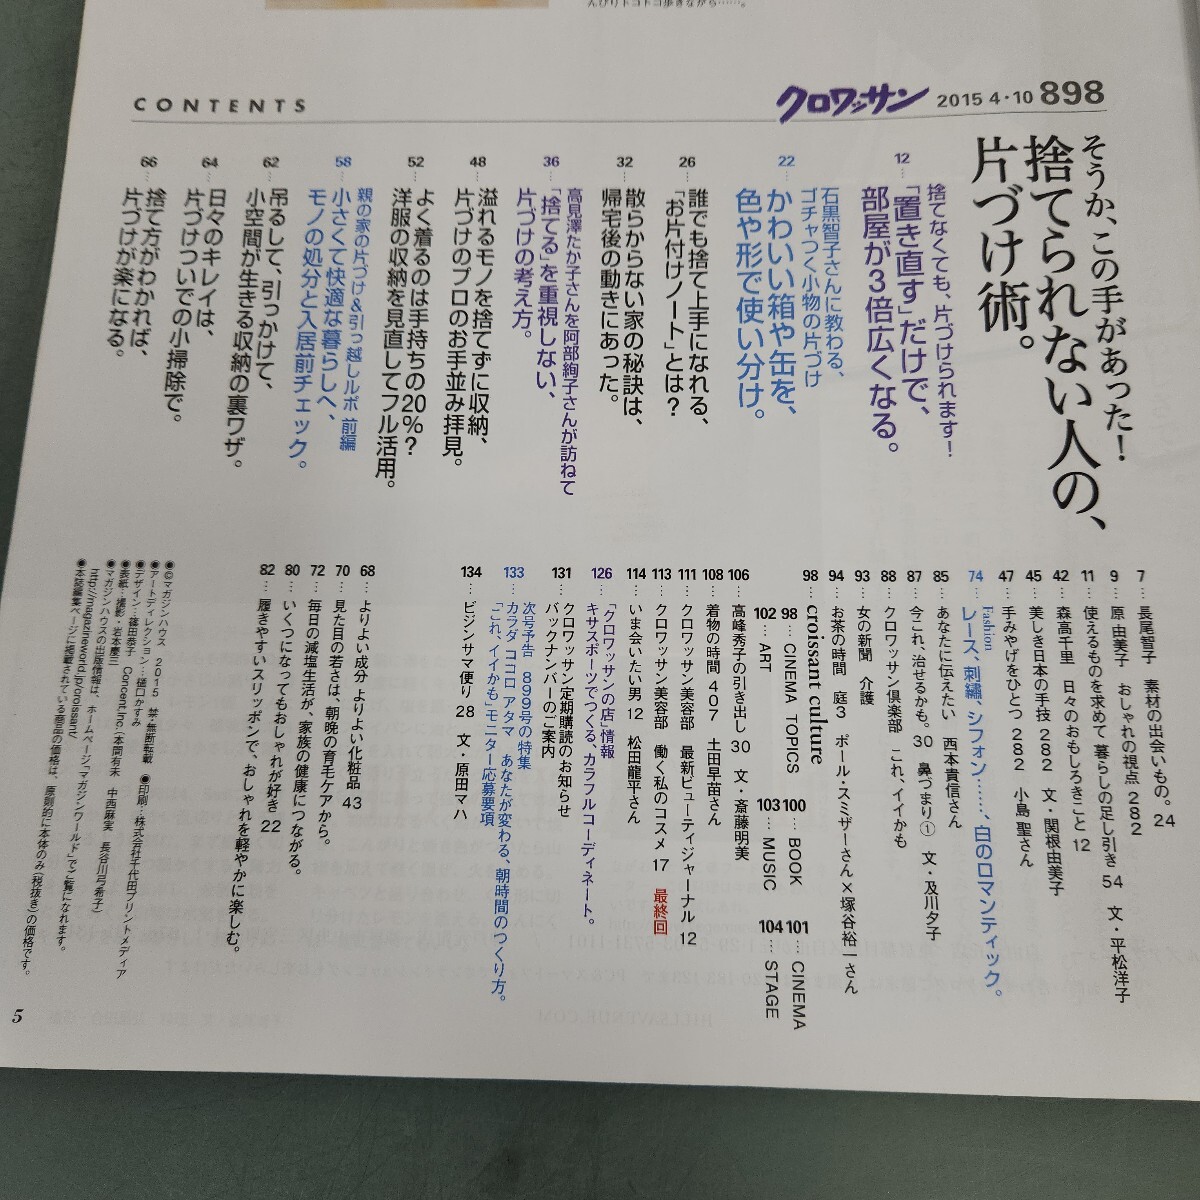 んびりトコトコ歩きながら……。
CONTENTS
クロワッサン 2015 4・10 898
そうか、この手があった!
捨てられない人の、
片づけ術。
捨てなくても、片づけられます!
12…「置き直す」だけで、
部屋が3倍広くなる。
石黒智子さんに教わる、
ゴチャつく小物の片づけ
22…かわいい箱や缶を、
色や形で使い分け。
26…誰でも捨て上手になれる、
「お片付けノート」とは?
32…散らからない家の秘訣は、
帰宅後の動きにあった。
高見澤たか子さんを阿部絢子さんが訪ねて
36…「捨てる」を重視しない、
片づけの考え方。
48…溢れるモノを捨てずに収納、
片づけのプロのお手並み拝見。
52…よく着るのは手持ちの20%?
洋服の収納を見直してフル活用。
親の家の片づけ&引っ越しルポ 前編
58…小さくて快適な暮らしへ、
モノの処分と入居前チェック。
62…吊るして、引っかけて、
小空間が生きる収納の裏ワザ。
64…日々のキレイは、
片づけついでの小掃除で。
66…捨て方がわかれば、
片づけが楽になる。
7…長尾智子 素材の出会いもの。24
9…原 由美子 おしゃれの視点 282
11…使えるものを求めて 暮らしの足し引き 54 文・平松洋子
42…森高千里 日々のおもしろきこと 12
45…美しき日本の手技 282 文・関根由美子
47…手みやげをひとつ 282 小島 聖さん
Fashion
74…レース、刺繡、シフォン……、白のロマンティック。
85…あなたに伝えたい 西本貴信さん
87…今これ、治せるかも。30 鼻づまり① 文・及川夕子
88…クロワッサン倶楽部 これ、イイかも
93…女の新聞 介護
94…お茶の時間 庭3 ポール・スミザーさん×塚谷裕一さん
98…croissant culture
98…CINEMA TOPICS 100…BOOK 101…CINEMA
102…ART 103…MUSIC 104…STAGE
106…高峰秀子の引き出し 30 文・斎藤明美
108…着物の時間 407 土田早苗さん
111…クロワッサン美容部 最新ビューティジャーナル 12
113…クロワッサン美容部 働く私のコスメ 17 最終回
114…いま会いたい男 12 松田龍平さん
126…「クロワッサンの店」情報
キサスポーツでつくる、カラフルコーディネート。
131…クロワッサン定期購読のお知らせ
バックナンバーのご案内
次号予告 899号の特集
133…カラダ ココロ アタマ あなたが変わる、朝時間のつくり方。
「これ、イイかも」モニター応募要項
134…ビジンサマ便り 28 文・原田マハ
68…よりよい成分 よりよい化粧品 43
70…見た目の若さは、朝晩の育毛ケアから。
72…毎日の減塩生活が、家族の健康につながる。
80…いくつになってもおしゃれが好き 22
82…履きやすいスリッポンで、おしゃれを軽やかに楽しむ。
●©マガジンハウス 2015 禁・無断転載 ●印刷:株式会社千代田プリントメディア
●アートディレクション:樋口かすみ
●デザイン:篠田恭子 Concent,inc(本間有未 中西麻実 長谷川弓希子)
●表紙:撮影・岩本慶三
●マガジンハウスの出版情報は、ホームページ「マガジンワールド」でご覧になれます。
http://magazineworld.jp/croissant/
●本誌編集ページに掲載されている商品の価格は、原則的に本体のみ(税抜き)の価格です。
5